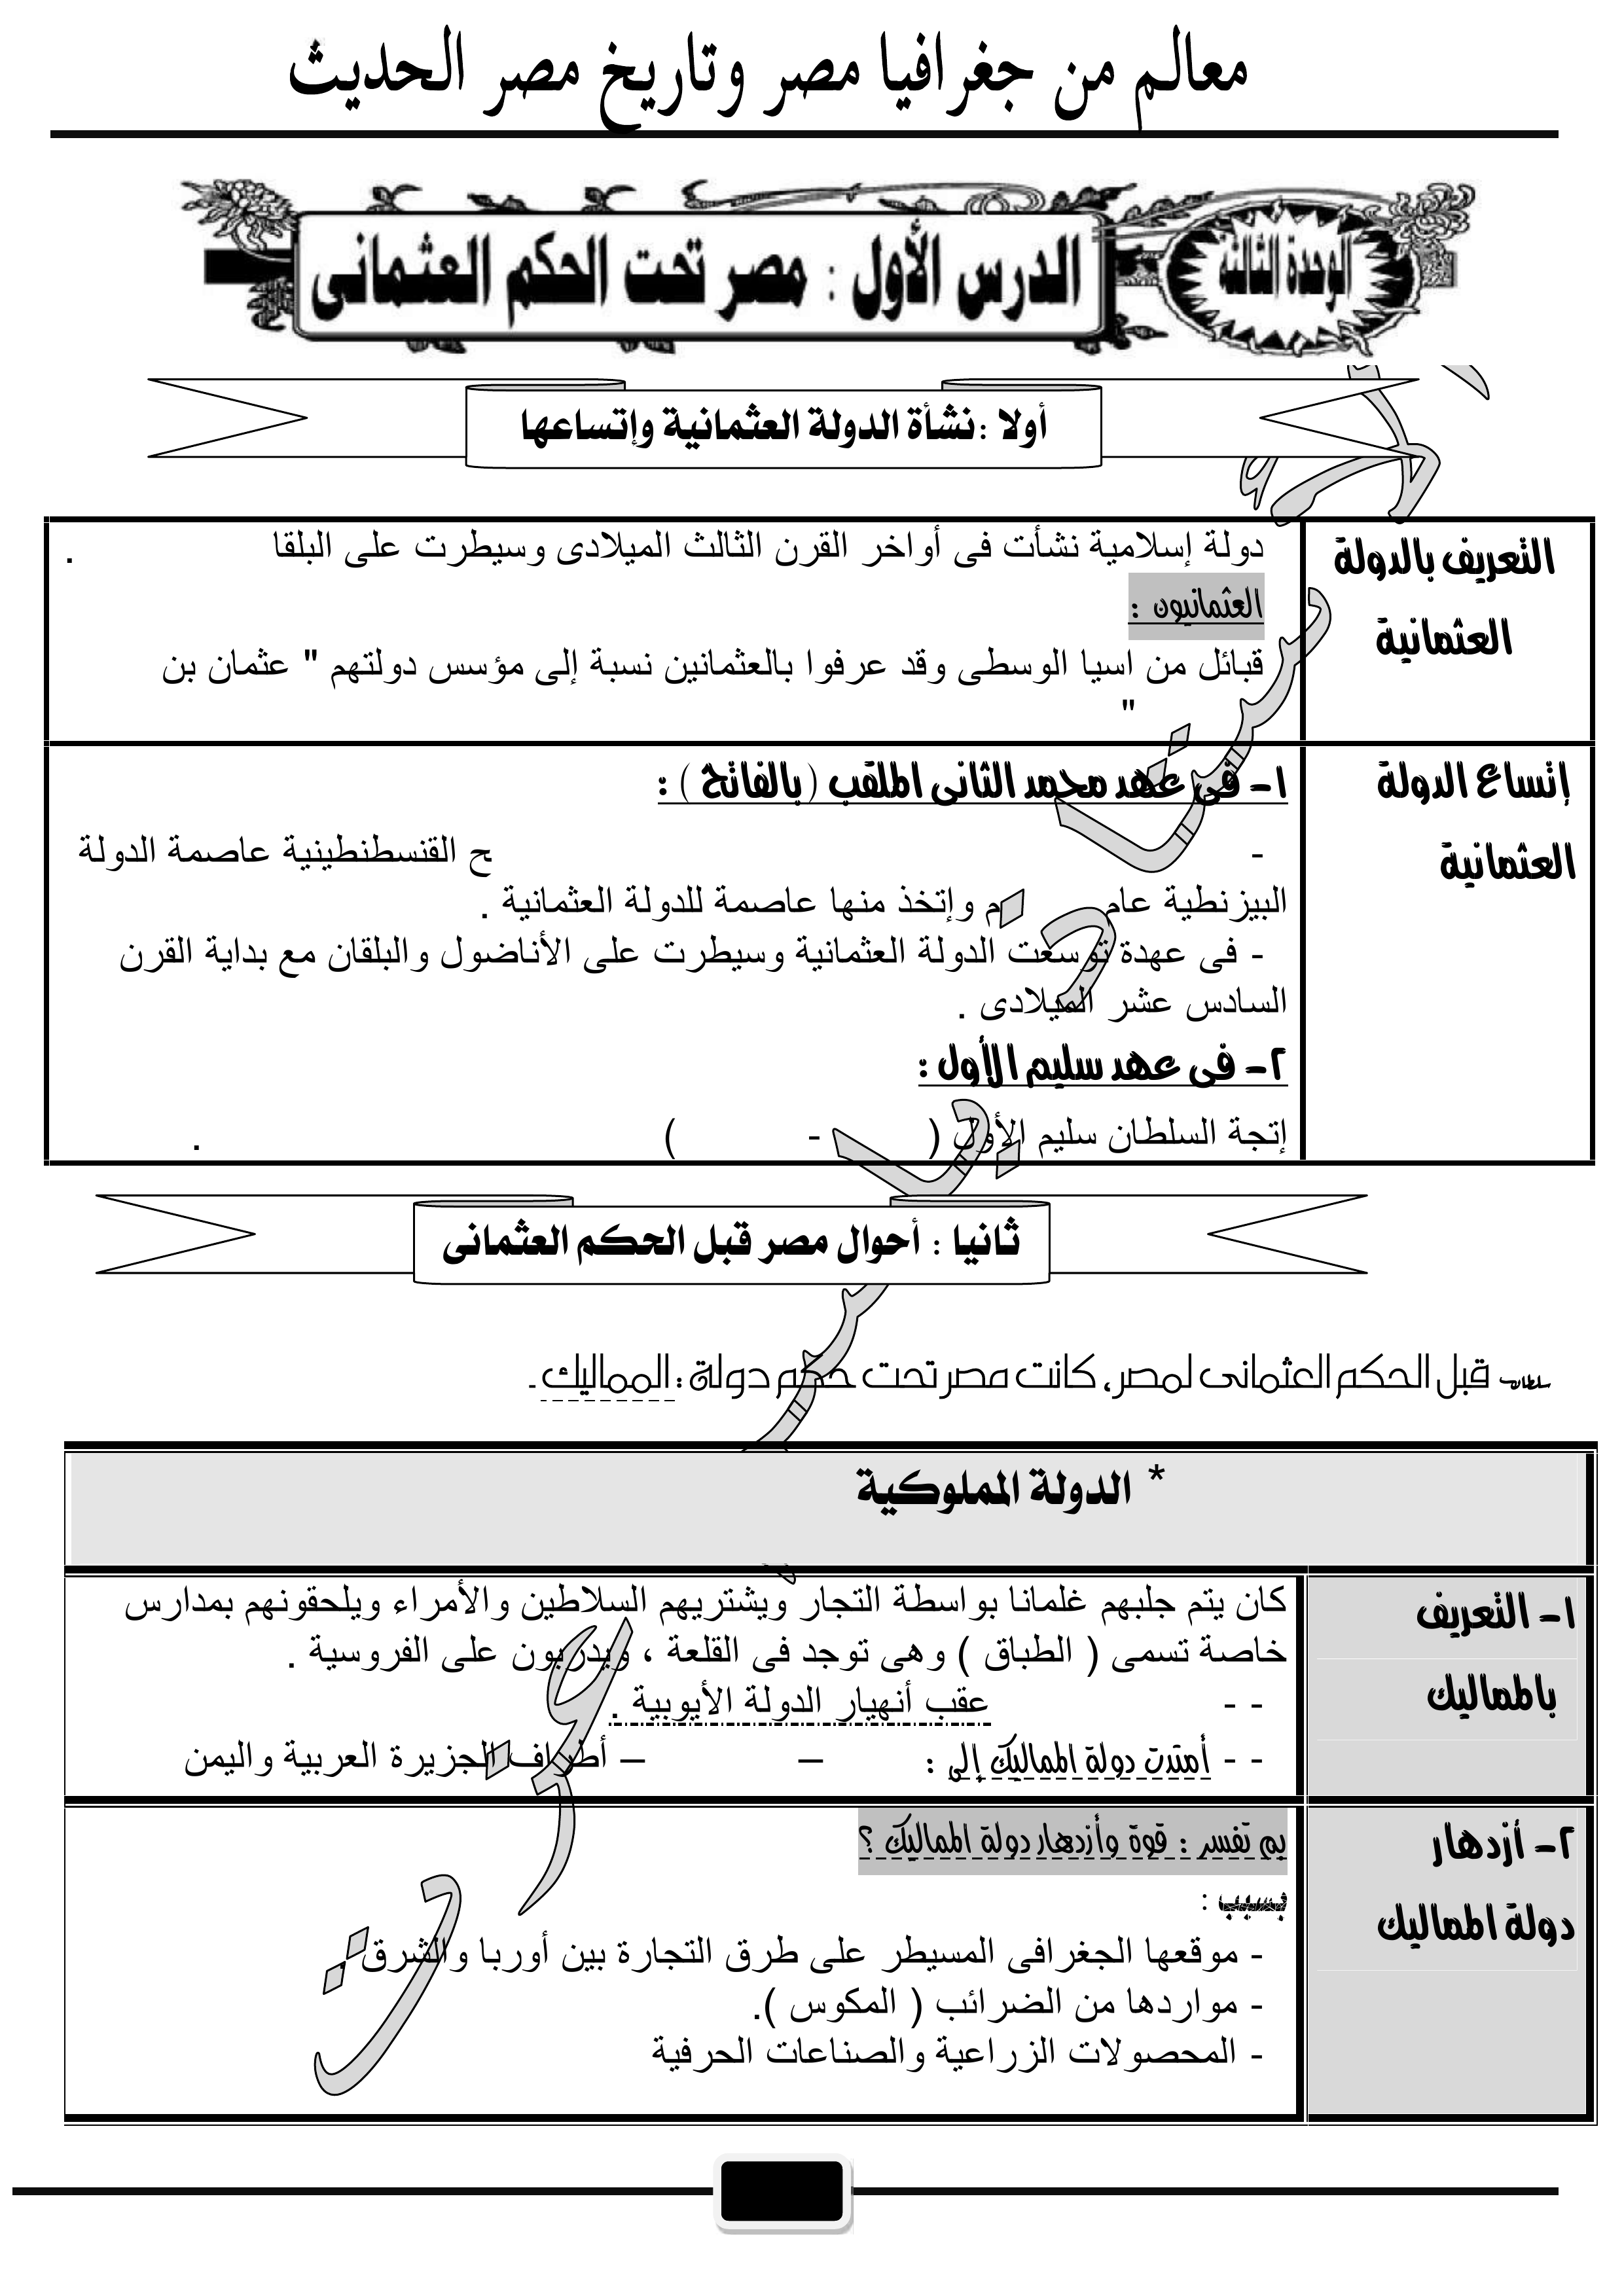 معالم من جغرافيا مصر وتاريخ مصر الحديث
الوحدة الثالثة
الدرس الأول : مصر تحت الحكم العثمانى
أولا :نشأة الدولة العثمانية وإتساعها
التعريف بالدولة
العثمانية
دولة إسلامية نشأت فى أواخر القرن الثالث الميلادى وسيطرت على البلقا .
العثمانيون :
قبائل من اسيا الوسطى وقد عرفوا بالعثمانين نسبة إلى مؤسس دولتهم " عثمان بن
"
إتساع الدولة
العثمانية
١- فى عهد محمد الثانى الملقب ( بالفاتح ) :
- ح القنسطنطينية عاصمة الدولة
البيزنطية عام م وإتخذ منها عاصمة للدولة العثمانية .
- فى عهدة توسعت الدولة العثمانية وسيطرت على الأناضول والبلقان مع بداية القرن
السادس عشر الميلادى .
٢- فى عهد سليم الأول :
إتجة السلطان سليم الأول ( - ) .
ثانيا : أحوال مصر قبل الحكم العثمانى
سلطان قبل الحكم العثمانى لمصر، كانت مصر تحت حكم دولة : المماليك .
* الدولة المملوكية
١- التعريف
بالمماليك
كان يتم جلبهم غلمانا بواسطة التجار ويشتريهم السلاطين والأمراء ويلحقونهم بمدارس
خاصة تسمى ( الطباق ) وهى توجد فى القلعة ، ويدربون على الفروسية .
- - عقب أنهيار الدولة الأيوبية .
- - أمتدت دولة المماليك إلى : – – أطراف الجزيرة العربية واليمن
٢- أزدهار
دولة المماليك
بم تفسر : قوة وأزدهار دولة المماليك ؟
بسبب :
- موقعها الجغرافى المسيطر على طرق التجارة بين أوربا والشرق .
- مواردها من الضرائب ( المكوس ).
- المحصولات الزراعية والصناعات الحرفية